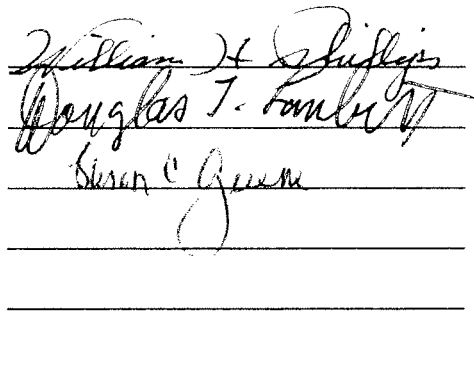 William H Phillips
Douglas T. Lambert
Susan C Greene